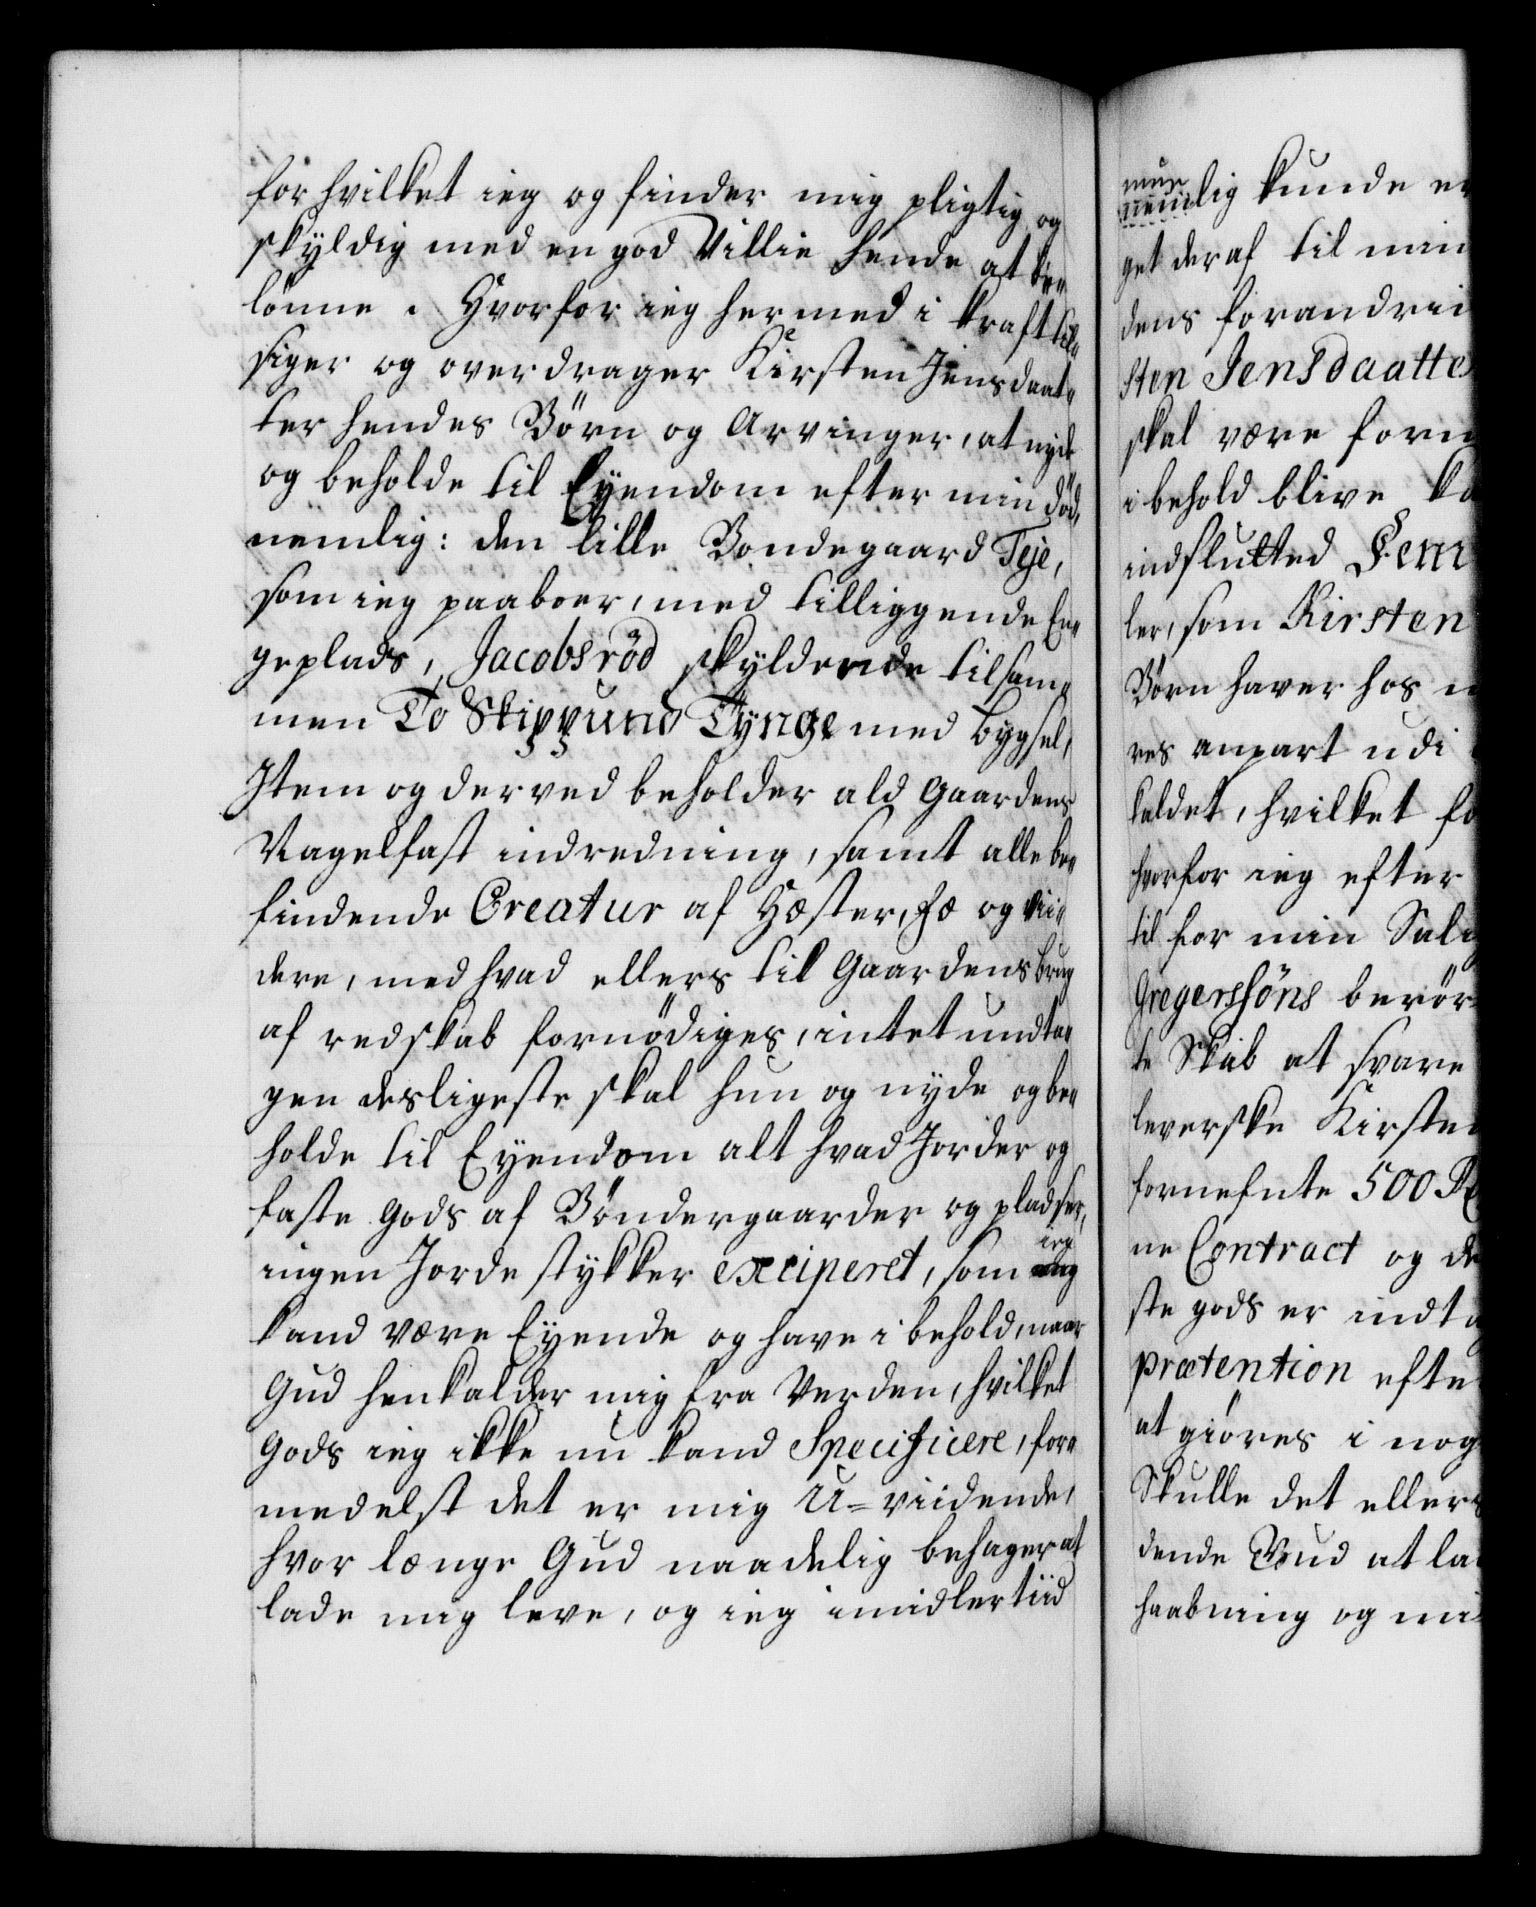 for hvilket ieg og finder mig pligtig og
skyldig med en god Villie hende at be„
lönne. Hvorfor ieg hermed i kraft til„
siger og overdrager Kirsten Jensdaat„
ter hendes Börn og Arvinger, at nyde
og beholde til Eyendom efter min död,
nemlig: den lille Bondegaard Teje,
som ieg paaboer, med tilliggende En„
geplads, Jacobsröd skyldende tilsam„
men To Skippund Tynge med bygsel,
Item og derved beholder ald Gaardens
Nagelfast indredning, samt alle be„
findende Creatur af Hæster, Fæ og vii„
dere, med hvad ellers til Gaardens brug
af redskab fornödiges, intet undta„
gen desligeste skal hun og nyde og be„
holde til Eyendom alt hvad Jorder og
faste Gods af Böndergaarder og pladser,
ingen Jorde stykker exciperet, som ieg
kand være Eyende og have i behold, naar
Gud henkalder mig fra Verden, hvilket
Gods ieg ikke nu kand Specificere, for„
medelst det er mig U=viidende,
hvor længe Gud naadelig behager at
lade mig leve, og ieg imidlertiid
nemlig kunde
get deraf til min
dens forandrin
sten Jensdaatter
skal være forn
i behold blive
indslutted
ler, som Kirsten
Börn haver hos
res anpart udi
kaldet, hvilket
hvorfor ieg efter
til for min Sali
Gregersöns berör
te Skib at svare
leverske Kirsten
fornefnte 500
ne Contract og de
ste gods er indta
prætention efte
at giöres i nog
Skulle det ellers
dende Bud at la
haabning og mi